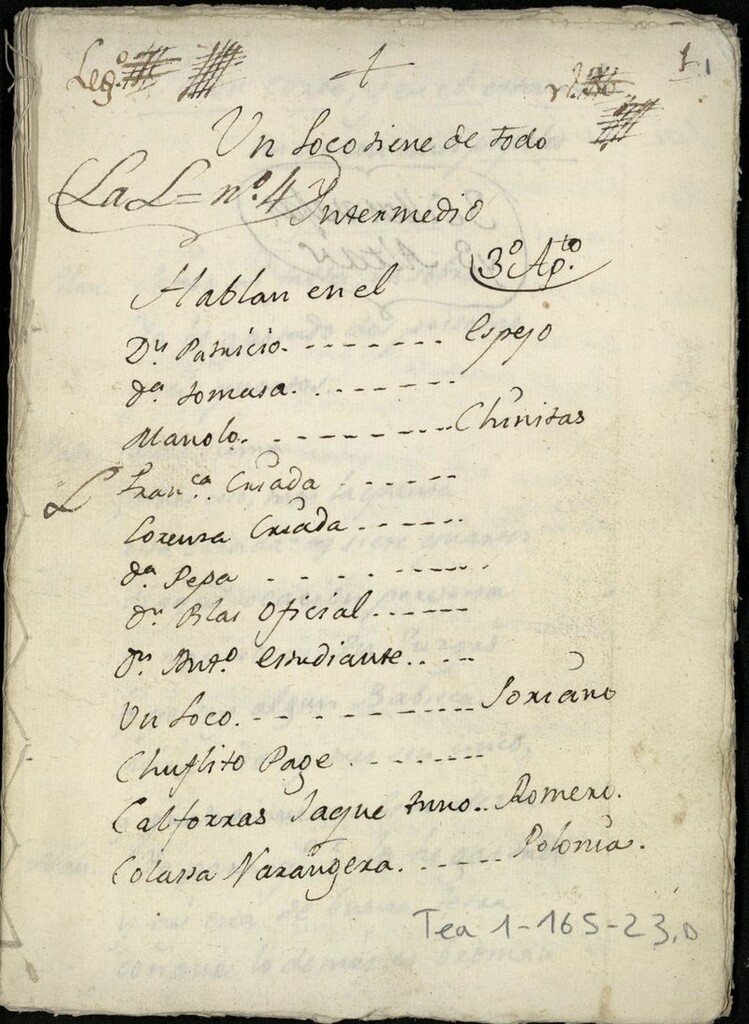 Leg.º
1
Un Loco tiene de todo
La L = nº. 4
Yntermedio
3º Ap.to
Hablan en el
Dn Patricio. - - - - - - - Espejo
da. tomasa. - - - - - - -
Manolo. - - - - - - - - - Chinitas
L Fran.ca Criada - - - - - -
Lorensa Criada - - - - - -
da. Pepa - - - - - - - - -
Dn Blas Oficial - - - - - -
Dn Ant.º estudiante. . - -
Un Loco. - - - - - - - - - - Soriano
Chuflito Page - - - - - - - -
Calforras Jaque tuno. . Romero.
Colasa Narangera. - - - - - Polonia.
Tea 1-165-23, D